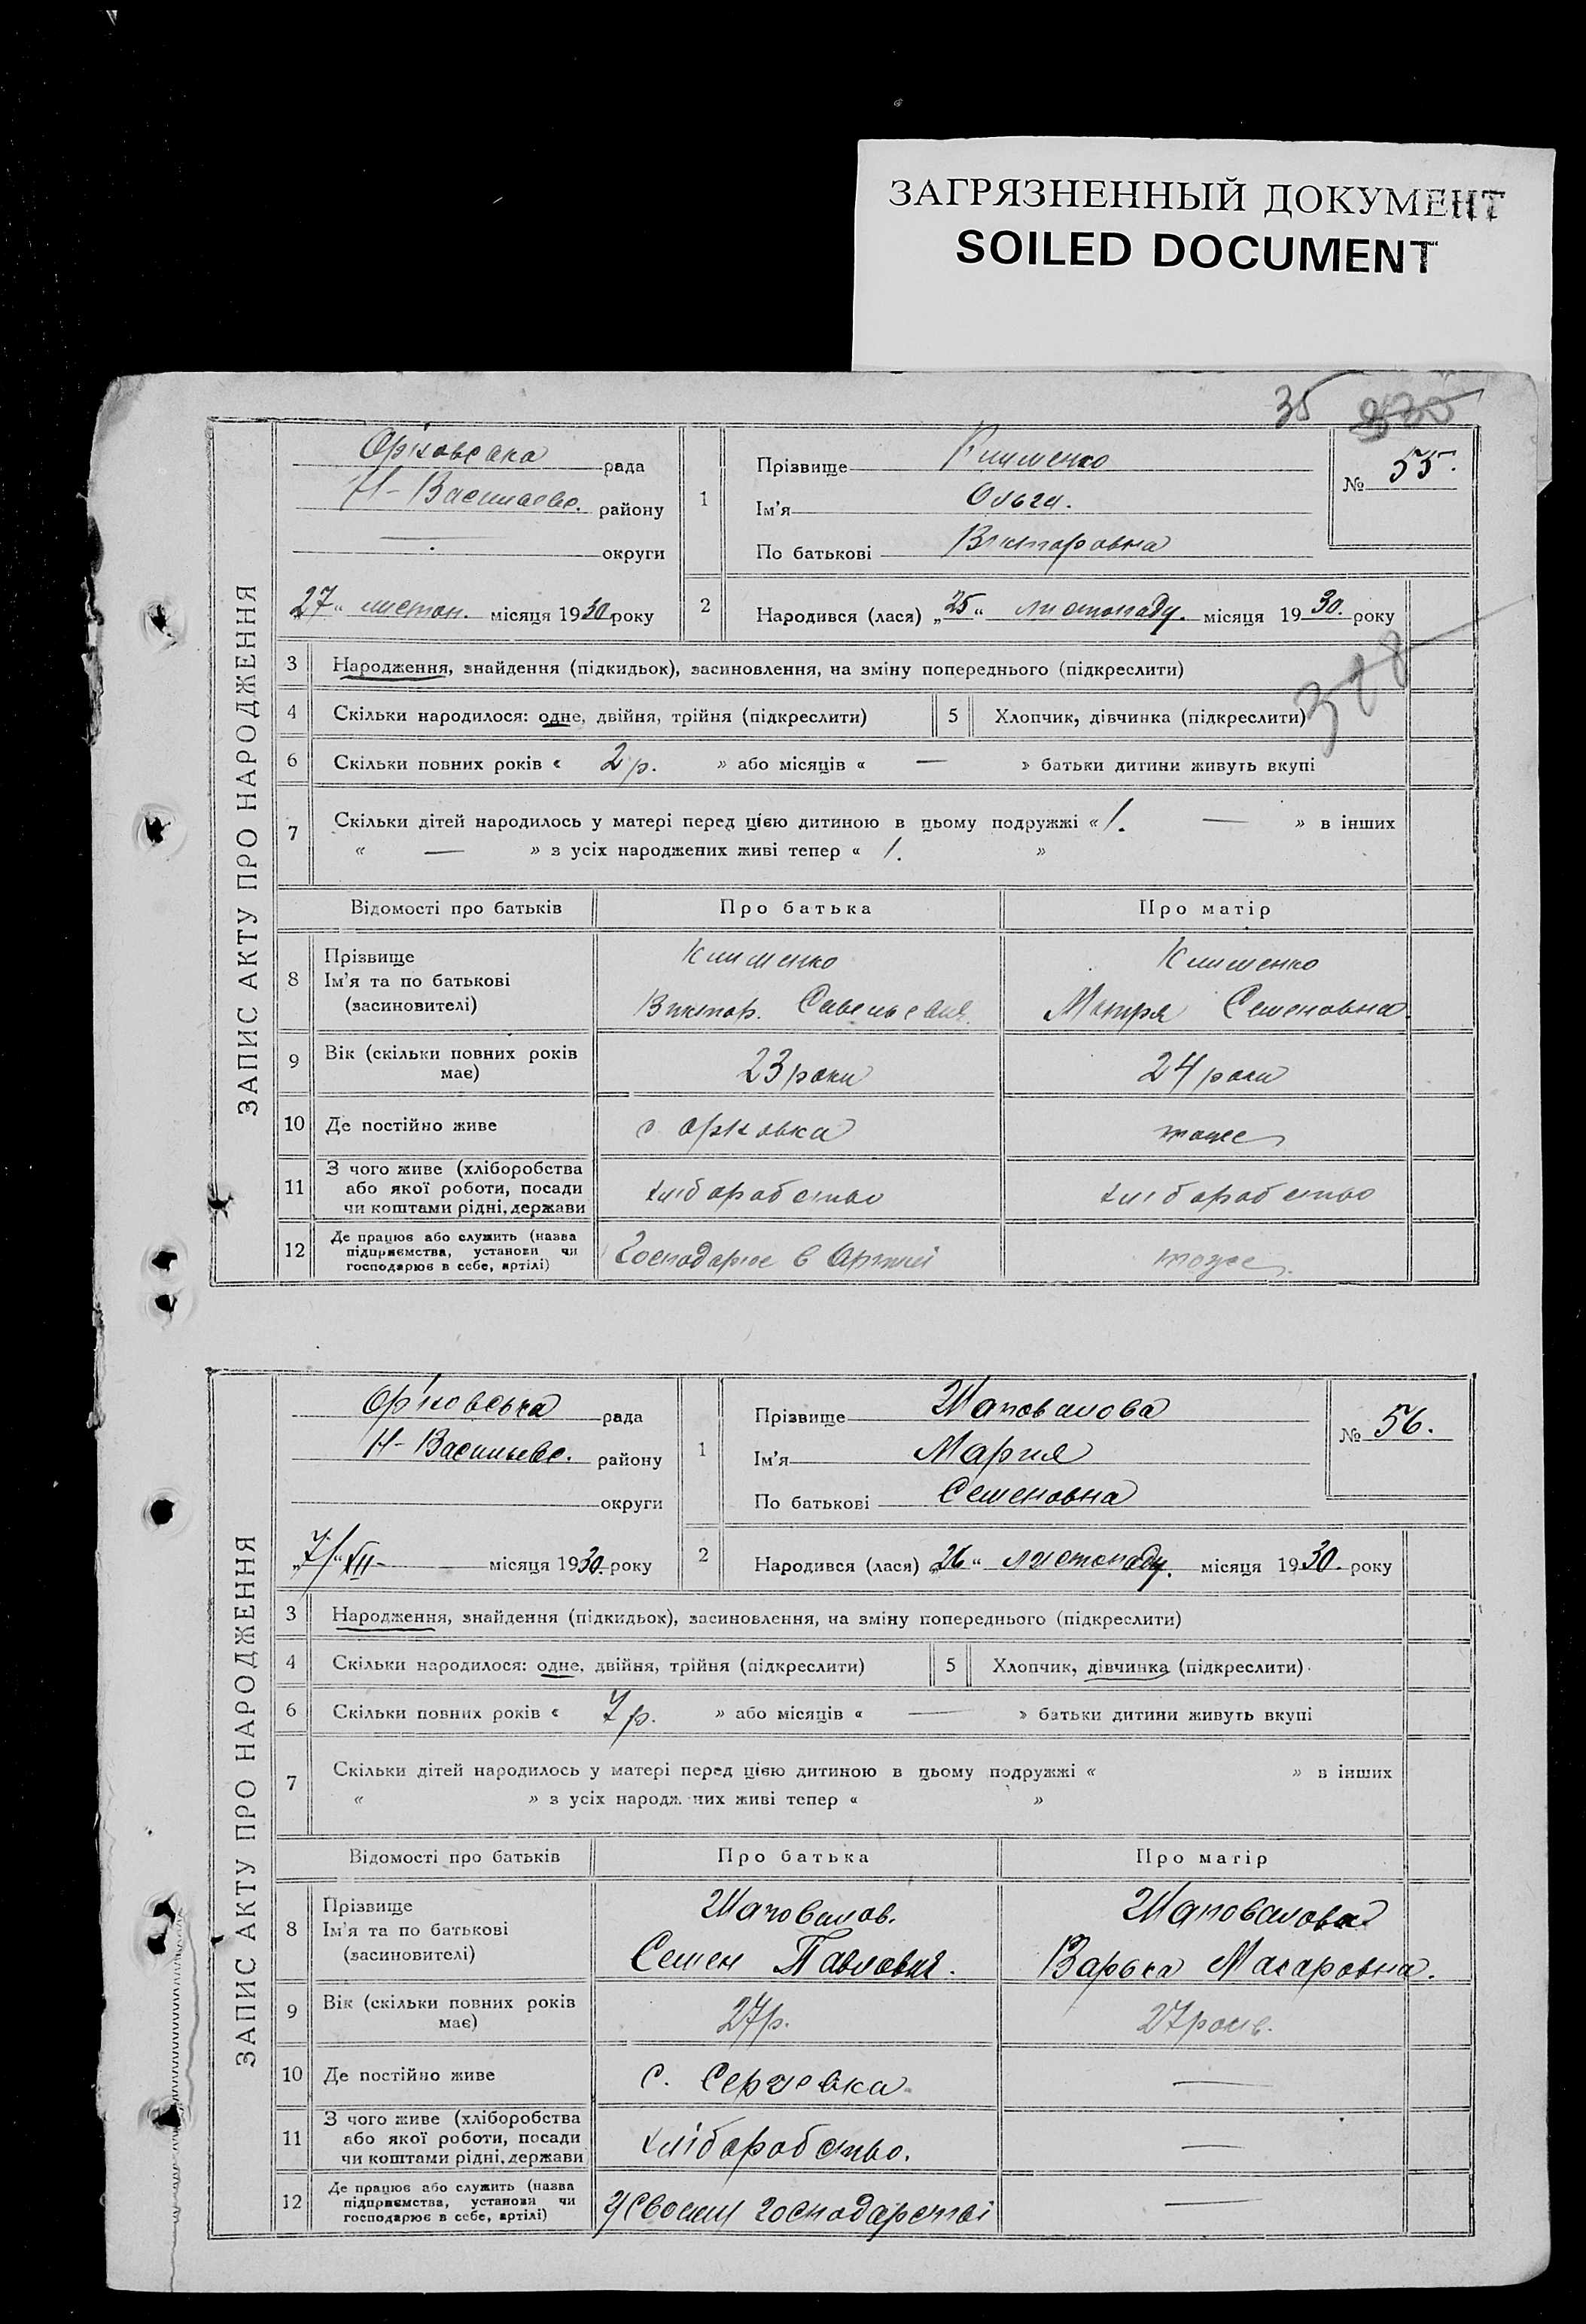 ЗАГРЯЗНЕННЫЙ ДОКУМЕНТ
SOILED DOCUMENT
35
ЗАПИС АКТУ ПРО НАРОДЖЕННЯ
Оріховська рада
Н-Васильевс. району
округи
„27“ листоп. місяця 1930 року
1
Прізвище Клименко
Ім'я Ольга.
По батькові Викторовна
№ 55.
2 Народився (лася) „25“ листопаду. місяця 1930. року
3 Народження, знайдення (підкидьок), засиновлення, на зміну попереднього (підкреслити)
4 Скільки народилося: одне, двійня, трійня (підкреслити) 5 Хлопчик, дівчинка (підкреслити)
6 Скільки повних років « 2 р. » або місяців « — » батьки дитини живуть вкупі
7 Скільки дітей народилось у матері перед цією дитиною в цьому подружжі « 1. — » в інших
« — » з усіх народжених живі тепер « 1. »
Відомості про батьків Про батька Про матір
8 Прізвище Клименко Клименко
Ім'я та по батькові
(засиновителі) Виктор. Семеновна
9 Вік (скільки повних років має) 23 роки 24 роки
10 Де постійно живе с тоже
11 З чого живе (хліборобства або якої роботи, посади чи коштами рідні, держави хліборобство хліборобство
12 Де працює або служить (назва підприємства, установи чи господарює в себе, артілі) Господарює в Артілі тоже.
ЗАПИС АКТУ ПРО НАРОДЖЕННЯ
Оріховська рада
Н-Васильевс. району
округи
„7/“ XII— місяця 1930. року
1
Прізвище Шаповалова
Ім'я Мария
По батькові Семеновна
№ 56.
2 Народився (лася) „26“ листопаду. місяця 1930. року
3 Народження, знайдення (підкидьок), засиновлення, на зміну попереднього (підкреслити)
4 Скільки народилося: одне, двійня, трійня (підкреслити) 5 Хлопчик, дівчинка (підкреслити)
6 Скільки повних років « 7 р. » або місяців « — » батьки дитини живуть вкупі
7 Скільки дітей народилось у матері перед цією дитиною в цьому подружжі « » в інших
« » з усіх народж них живі тепер « »
Відомості про батьків Про батька Про матір
8 Прізвище Шаповалов. Шаповалова
Ім'я та по батькові
(засиновителі) Семен Павлович. Варька Макаровна.
9 Вік (скільки повних років має) 27 р. 27 рокив.
10 Де постійно живе с. Сергиевка —
11 З чого живе (хліборобства або якої роботи, посади чи коштами рідні, держави хліборобство. —
12 Де працює або служить (назва підприємства, установи чи господарює в себе, артілі) У Своим господарстві —